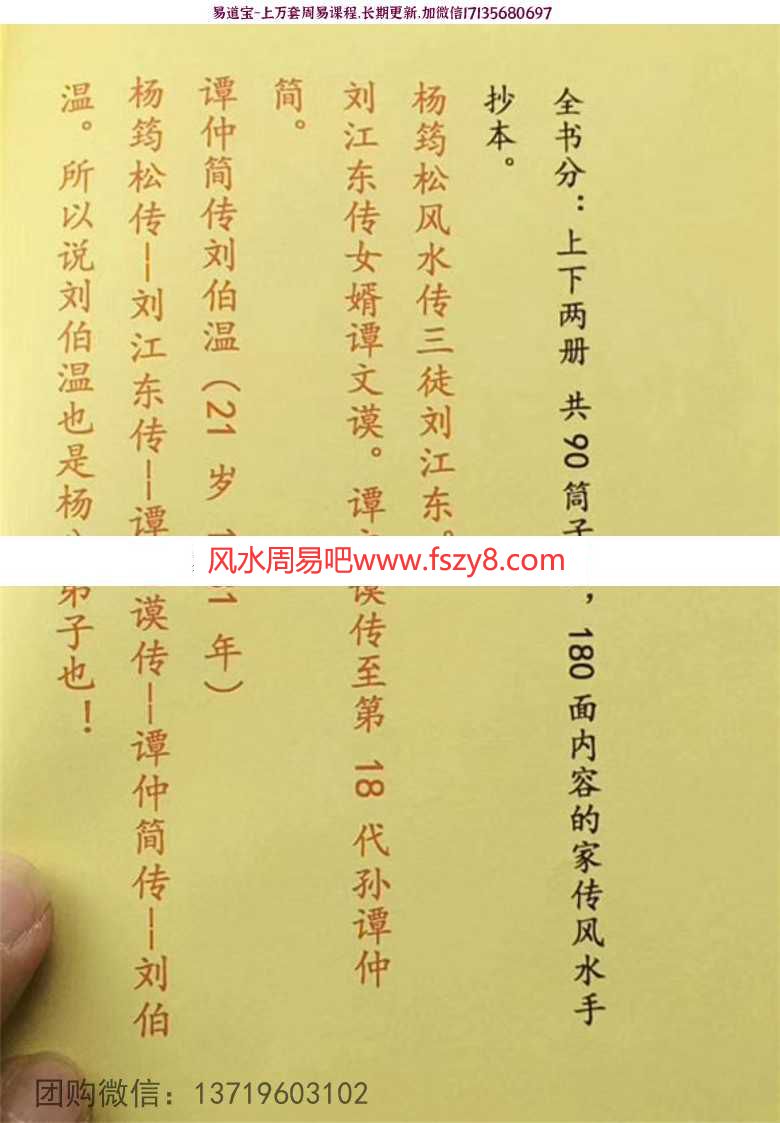 易道宝-上万套周易课程.长期更新.加微信17135680697
全书分：上下两册 共90筒子，180面内容的家传风水手
抄本。
杨筠松风水传三徒刘江东。
刘江东传女婿谭文谟。谭谟传至第 18 代孙谭仲
简。
谭仲简传刘伯温（21 岁 年）
杨筠松传--刘江东传--谭谟传--谭仲简传--刘伯
温。所以说刘伯温也是杨弟子也！
风水周易吧www.fszy8.com
团购微信：13719603102